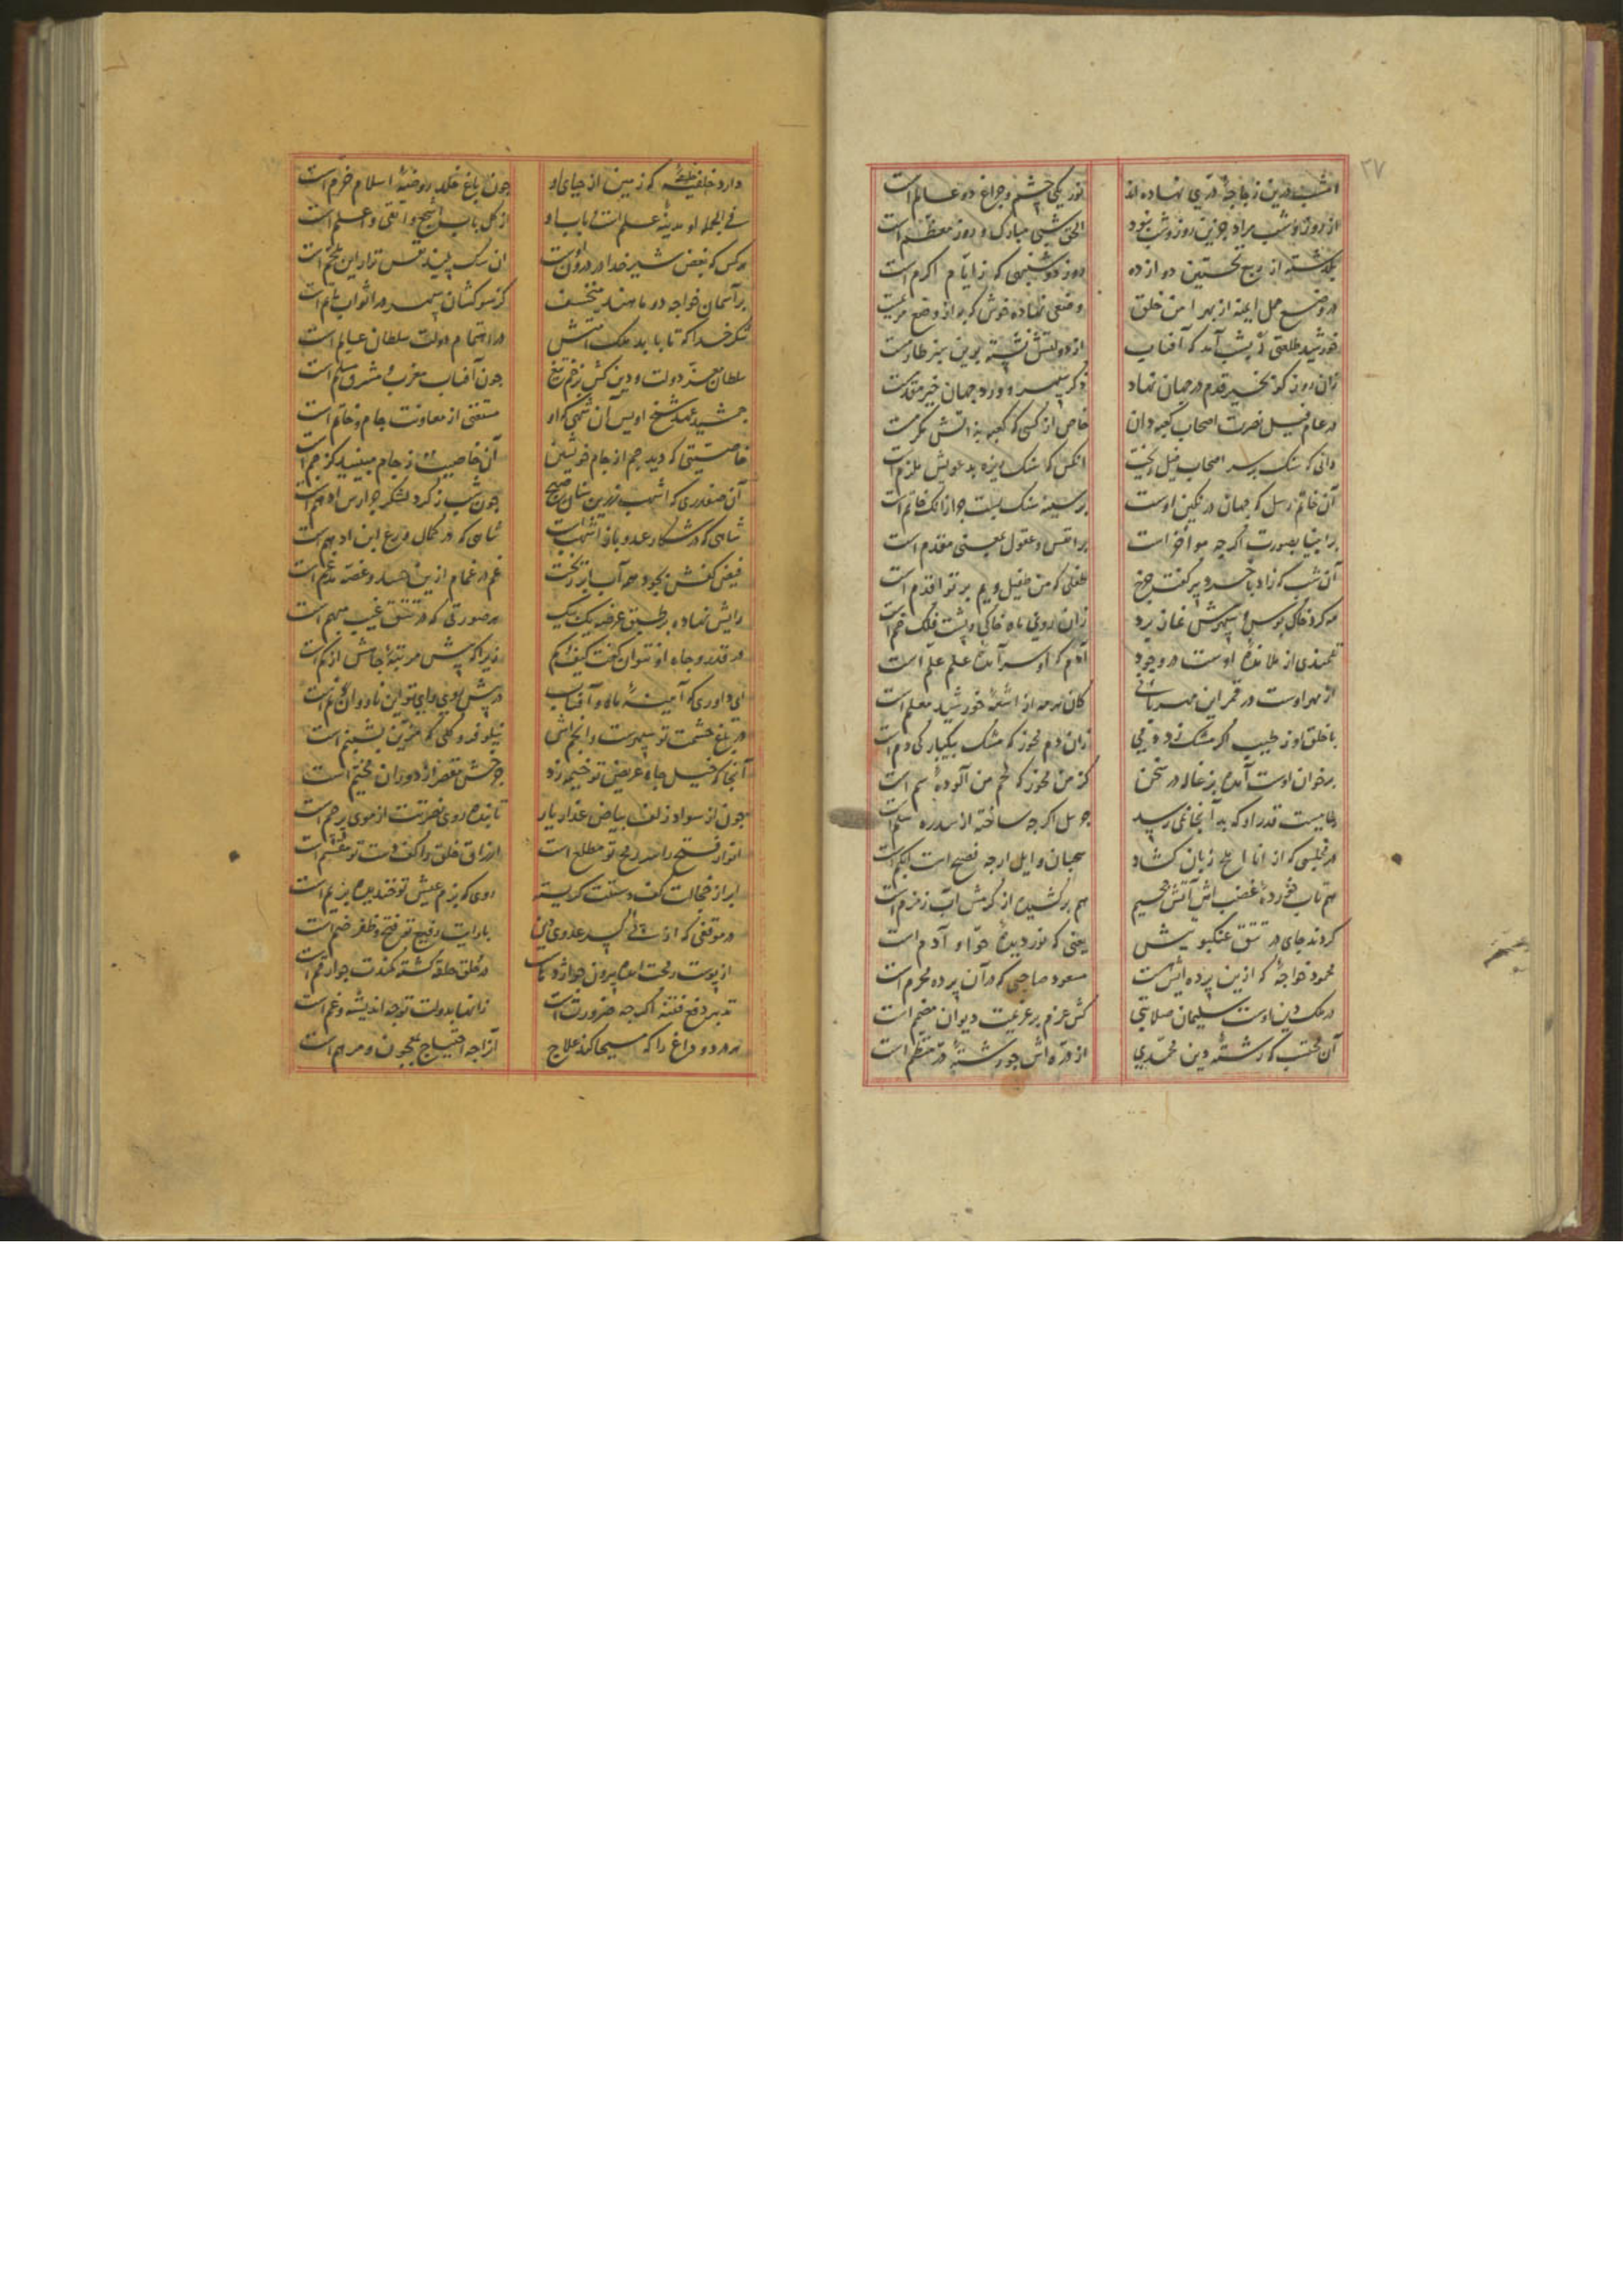 ۳۷
امشب درین زجاجه دری نهاده اند نور یکی چشم و چراغ دو عالم است
از روز و شب مراد جزین روز و شب نبود الحق شبی مبارک و روز معظم است
بگذشته از ربیع نخستین دوازده روز دوشنبهی که ز ایام اکرم است
در وضع حمل ایمنه از بهر امن خلق وضعی نهاده خوش که به از وضع مریمست
خورشید طلعتی ز پسش آمد که آفتاب از دولتش نشسته برین سبز طارمست
زان روز کو بخیر قدم در جهان نهاد ذکر پیمبر و ورد جهان خیر مقدمست
در عام فیل نصرت اصحاب کعبه دان خاص از کسی که کعبه بذاتش مکرمست
دانی که سنک بر سر اصحاب فیل ریخت انکس که سنک ریزه بدعویش ملزم است
آن خاتم رسل که جهان در نکین اوست بر سینه سنک بست جو زانک خاتم است
بر انبیا بصورت اگر چه مؤخر است بر انفس و عقول بمعنی مقدم است
آن شب که زاد با خرد پیر گفت چرخ طفلی که من طفیل ویم بر تو اقدم است
مه کرد خاک بوس سپهرش نماز برد زان روی ماه خاکی و پشت فلک خم است
تلمیذی از ملازمه اوست در وجود آدم که او سر آمده علم علم است
از مهر اوست در قمر این مهربانی کان نور مه از اشعه خورشید معلم است
با خلق او ز طیب اگر مشک زد دمی زان دم مخور که مشک بیکبارگی دم است
بر خوان اوست آمده بزغاله در سخن کز من مخور که لحم من آلوده سم است
جاهیست قدر او که بدآنجا نمی رسد جبریل اگر چه ساخته از سدره سلم است
در مجلسی که از انا املح زبان گشاد سحبان وایل ارچه فصیح است ابکم است
هم تاب خورده غضب اش آتش جحیم هم بر کشیده از کرمش آب زمزم است
کردند جای در تتق عنکبوتیش یعنی که نور دیده حوا و آدم است
محمود خواجه که ازین پرده ایش هست مسعود صاحبی که در آن پرده محرم است
در ملک دین اوست سلیمان صلابتی کش عزم بر عزیمت دیوان مصمم است
آن محتسب که رشته دین محمدی از دره اش جو رشته در منتظم است
دارد خلیفه که زمین از حیای او جون باغ خلد روضه اسلام خرم است
فی الجمله او مدینه علم است بی باب او از کل باب اشجع و اتقی و اعلم است
هرکس که بغض شیر خدا در درون اوست ان سک پلید نفس
بر آسمان خواجه دو ماهند منخسف کز سوکشان سپهر در اثواب ماتم است
شکر خدا که تا بابد ملک امتش در اهتمام دولت سلطان عالم است
سلطان معز دولت و دین کش بزخم تیغ جون آفتاب مغرب و مشرق مسلم است
جمشید عهد شیخ اویس آن شهی که او مستغنی از معاونت جام و خاتم است
خاصیتی که دید جم از جام خویشتن آن خاصیت ز جام مبینید کز جم است
آن صفدری که اشهب زرین سنان صبح جون شب ز کرد لشکر جرارش ادهم است
شاهی که در شکار عدو باز اشهب است شاهی که در کمال ورع ابن ادهم است
فیض کفش بجود همه آب ابر ریخت غم در غمام ازین حسد و غصه مدغم است
رایش نهاده بر طبق عرض یک بیک هر صورتی که در تتق غیب مبهم است
در قدر و جاه او نتوان گفت کیف و کم زیرا که پیش مرتبه جاهش از کم است
ای داوری که آینه ماه و آفتاب در پیش روی و رای تو این نار و آن نم است
در باغ حشمت تو سپهرست و انجم اش نیلوفر و گلی که مزین بشبنم است
آنجا که خیل جاه عریض تو خیمه زد جرخش مقعر از دوران مخیم است
جون از سواد زلف بیاض عذار یار تابنده روی نصرتت از موی پرچم است
انوار فتح را سر رمح تو مطلع است ارزاق خلق را کف دست تو مقسم است
ابر از خجالت کف دستت گریسته روی که بزم عیش تو خندیده بر یم است
با رایت رفیع تو فتح و ظفر ضم است
از پوست رخت در حلق حلقه گشته کمندت جو ارقم است
تدبیر دفع فتنه اگر چه ضرورت است زانها بدولت تو جه اندیشه و غم است
هر درد و داغ را که مسیحا کند علاج آنرا چه احتیاج بمعجون و مرهم است